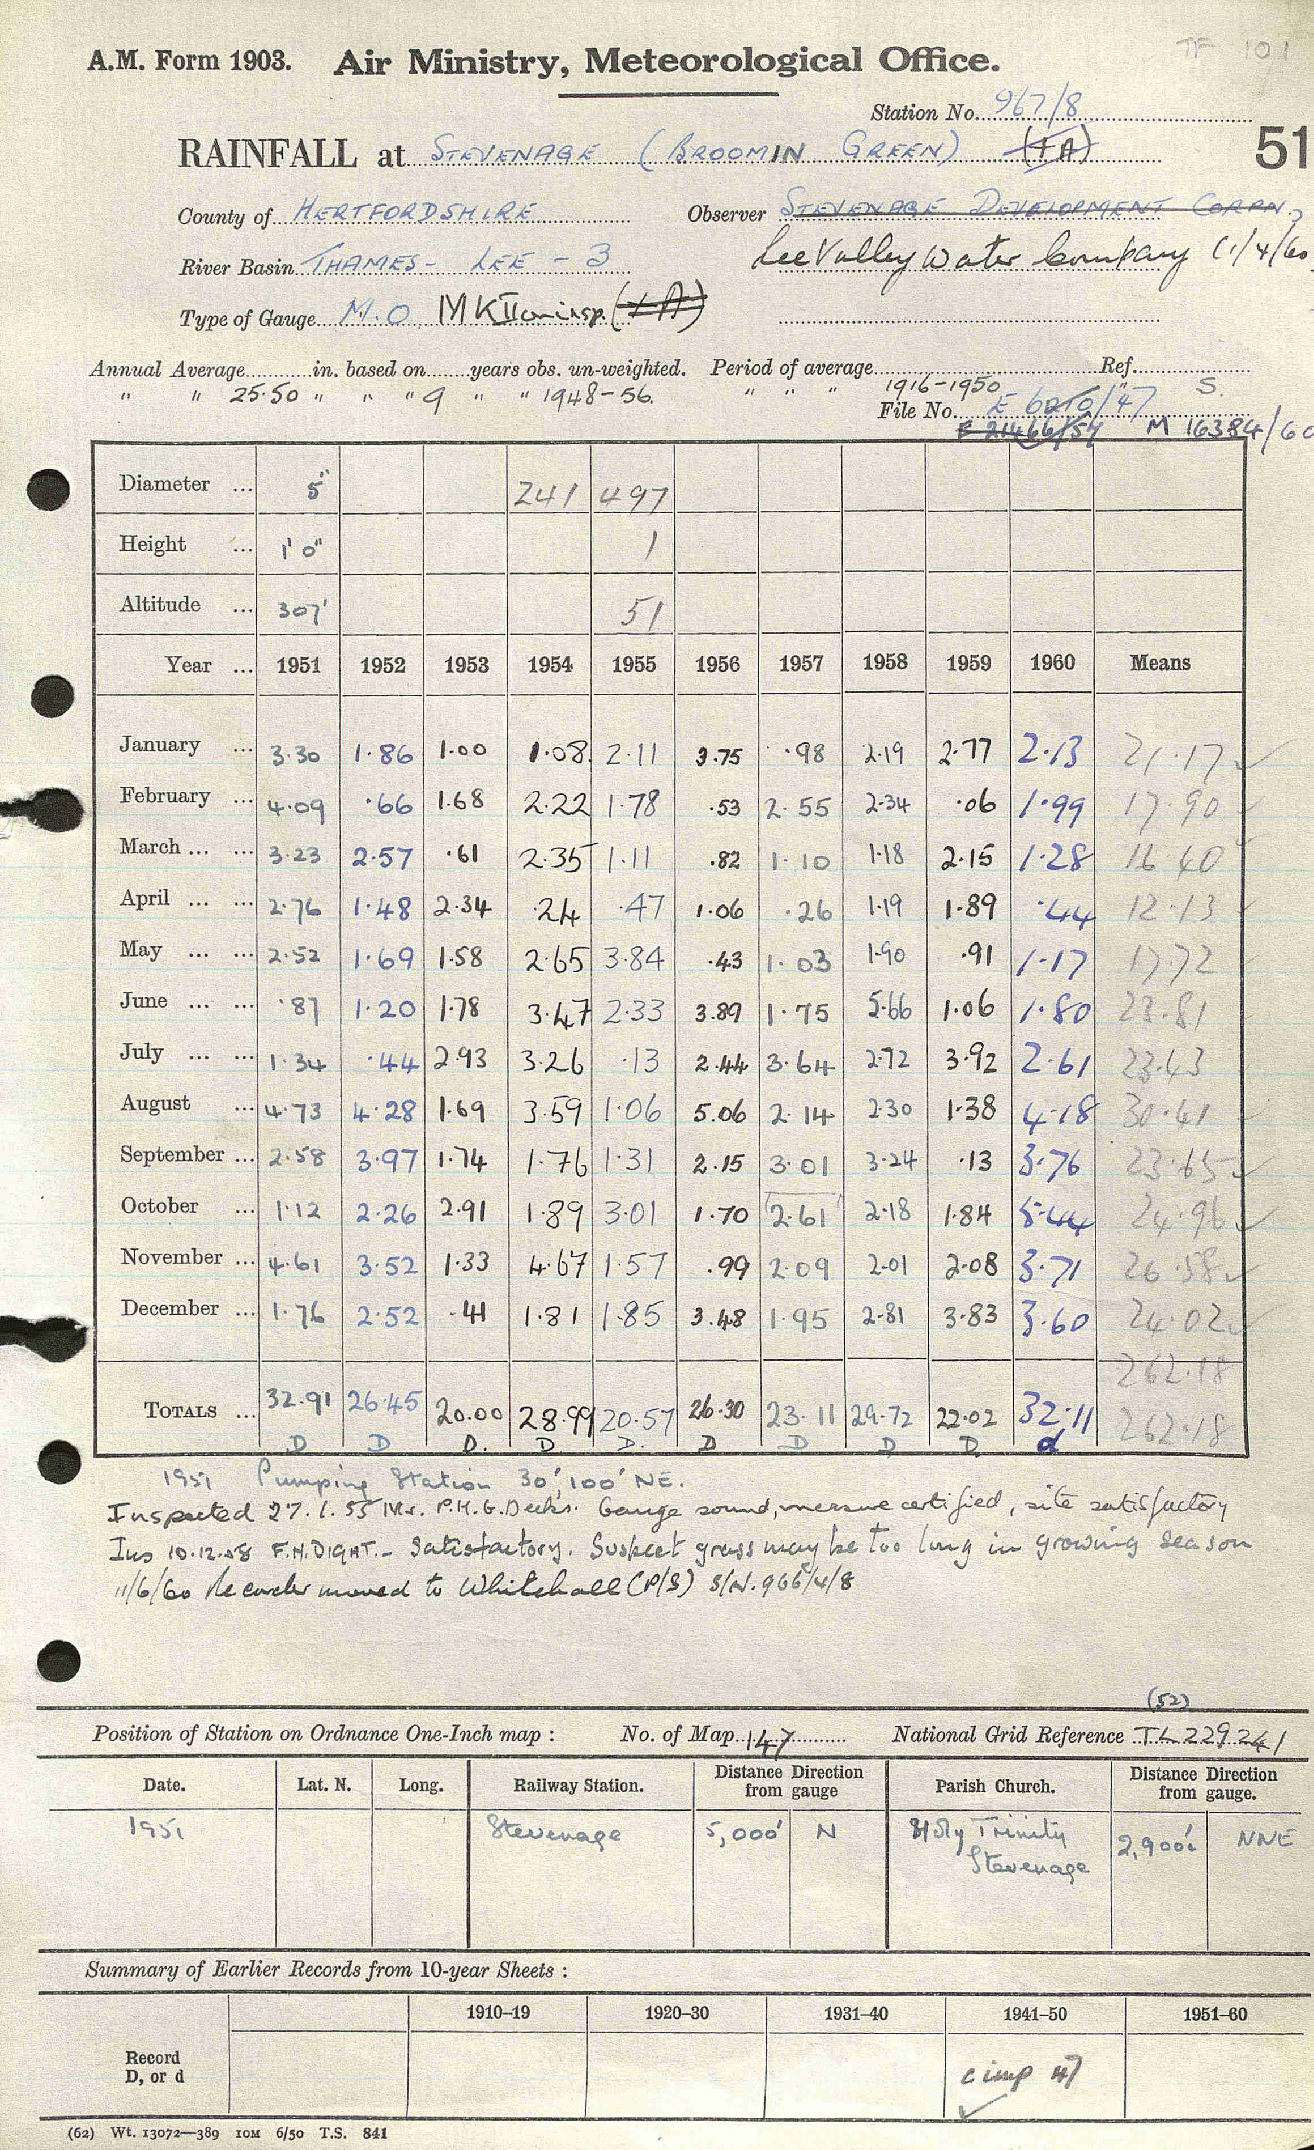 TF 101
A.M. Form 1903. Air Ministry, Meteorological Office.
Station No. 967/8
RAINFALL at STEVENAGE (BROOMIN GREEN) (I A) 51
County of HERTFORDSHIRE Observer STEVENAGE DEVELOPMENT CORPN.
River Basin THAMES - LEE - 3 Lee Valley Water Company (1/4/60
Type of Gauge M.O MK II
Annual Average in. based on years obs. un-weighted. Period of average Ref.
" " 25.50 " " " 9 " " 1948-56. " " " 1916-1950 " S.
File No. E 6210/47
E 21466/54 M 16384/60
Diameter ... 5" 241 497
Height ... 1' 0" 1
Altitude ... 307' 51
Year ... 1951 1952 1953 1954 1955 1956 1957 1958 1959 1960 Means
January ... 3.30 1.86 1.00 1.08 2.11 3.75 .98 2.19 2.77 2.13 21.17
February ... 4.09 .66 1.68 2.22 1.78 .53 2.55 2.34 .06 1.99 17.90
March ... ... 3.23 2.57 .61 2.35 1.11 .82 1.10 1.18 2.15 1.28 16 40
April ... ... 2.76 1.48 2.34 .24 .47 1.06 .26 1.19 1.89 .44 12.13
May ... ... 2.52 1.69 1.58 2.65 3.84 .43 1.03 1.90 .91 1.17 17 72
June ... ... .87 1.20 1.78 3.47 2.33 3.89 1.75 5.66 1.06 1.80 23.81
July ... ... 1.34 .44 2.93 3.26 .13 2.44 3.64 2.72 3.92 2.61 23.43
August ... 4.73 4.28 1.69 3.59 1.06 5.06 2.14 2.30 1.38 4.18 30.41
September ... 2.58 3.97 1.74 1.76 1.31 2.15 3.01 3.24 .13 3.76 23.65
October ... 1.12 2.26 2.91 1.89 3.01 1.70 2.61 2.18 1.84 5.44 24.96
November ... 4.61 3.52 1.33 4.67 1.57 .99 2.09 2.01 2.08 3.71 26.58
December ... 1.76 2.52 .41 1.81 1.85 3.48 1.95 2.81 3.83 3.60 24.02
262.18
TOTALS ... 32.91 26.45 20.00 28.99 20.57 26.30 23.11 29.72 22.02 32.11 262.18
D D D. D. D. D D D D. d
1951 Pumping Station 30', 100' NE.
Inspected 27.1.55 Mr. P.H.G. Gauge sound, measure certified, site satisfactory
Ins 10.12.58 F.H.DIGHT. - Satisfactory. Suspect grass may be too long in growing season
11/6/60 Recorder moved to Whitehall (P/S) S/N. 966/4/8
(52)
Position of Station on Ordnance One-Inch map : No. of Map 147 National Grid Reference TL 229241
Date. Lat. N. Long. Railway Station. Distance from Direction gauge Parish Church. Distance from Direction gauge.
1951 Stevenage 5,000' N Holy Trinity Stevenage 2,900' NNE
Summary of Earlier Records from 10-year Sheets :
1910–19 1920–30 1931–40 1941–50 1951–60
Record
D, or d
c imp 47
(62) Wt. 13072—389 10M 6/50 T.S. 841